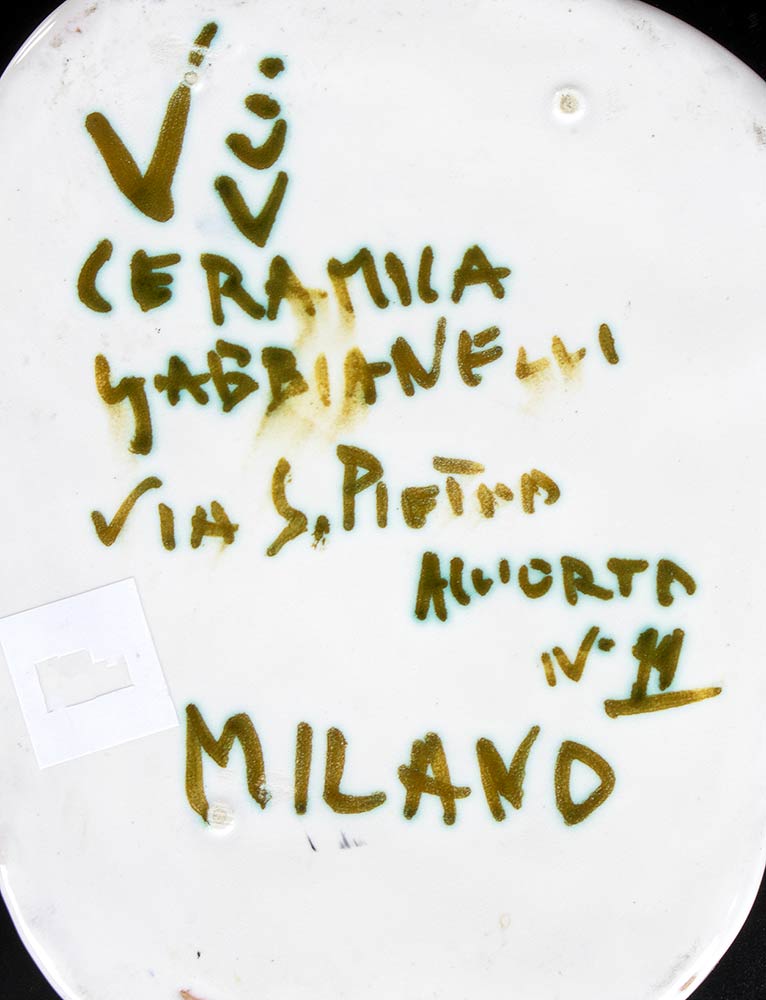 CERAMICA
GABBIANELLI
VIA S. PIETRO
ALL'ORTO
N° 11
MILANO